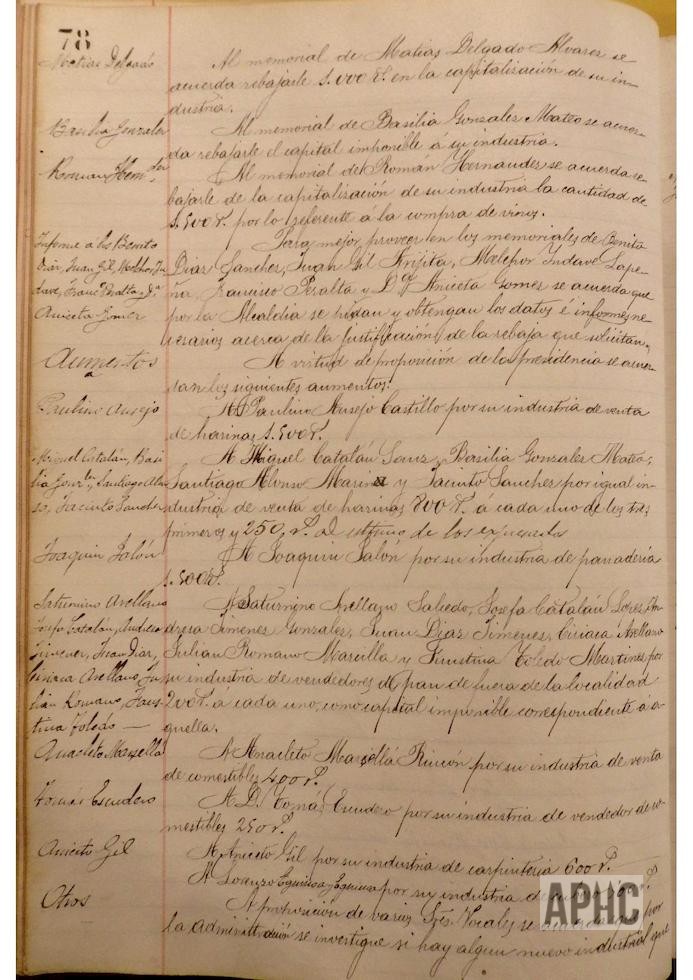 78
Matias Delgado
Al memorial de Matias Delgado Alvarez se
acuerda rebajarle 1.000 P. en la capitalización de su in-
dustria.
Basilia Gonzalez
Al memorial de Basilia Gonzales Mateo se acuer-
da rebajarle el capital imponible á su industria.
Roman Hernz
Al memorial de Román Hernandez se acuerda re-
bajarle de la capitalización de su industria la cantidad de
1.500 P. por lo referente a la compra de vinos.
Informe a los Benito
Diaz, Juan Gil, Melchor Yn
dave, Franco Peralta y Da
Aniceta Gomez
Para mejor proveer en los memoriales de Benita
Diaz Sanchez, Juan Gil, Melchor Yndave Lape-
ña, Francisco Peralta y Da Aniceta Gomes se acuerda que
por la Alcaldia se pidan y obtengan los datos é informes ne-
cesarios acerca de la justificación de la rebaja que solicitan.
Aumentos
A virtud de proposición de la presidencia se acuer-
dan los siguientes aumentos:
Paulino Ausejo
A D. Paulino Ausejo Castillo por su industria de venta
de harinas 1.500 P.
Miguel Catalán, Basi
lia Gonz, Santiago Alon
so, Jacinto Sanchez
A Miguel Catalán Sanz, Basilia Gonzales Mateo,
Santiago Alonso Marin y Jacinto Sanches por igual in-
dustria de venta de harinas 800 P. á cada uno de los tres
primeros y 250 P. al ultimo de los expresados
Joaquin Jalón
A Joaquin Jalon por su industria de panaderia
1.500 P.
Saturnino Arellano
Josefa Catalán, Andresa
Jimenez, Juan Diaz,
Ciriaca Arellano, Ju
lián Romano, Faus-
tina Toledo —
A Saturnino Arellano Salcedo, Josefa Catalán Lopes, An-
dresa Jimenes Gonzales, Juan Diaz Jimenes, Ciriaca Arellano
Julian Romano Mancilla y Faustina Toledo Martines por
su industria de vendedores de pan de fuera de la localidad
200 P. a cada uno, como capital imponible correspondiente á a-
quella.
Anacleto
A Anacleto Rincón por su industria de venta
de comestibles 400 P.
Tomás Escudero
A D. Tomás Escudero por su industria de vendedor de co-
mestibles 250 P.
Aniceto Gil
A Aniceto Gil por su industria de carpinteria 600 P.
A Lorenzo por su industria de
Otros
A proposición de varios Sres. Vocales se acuerda que por
la administración se investigue si hay algun nuevo industrial que
APHC